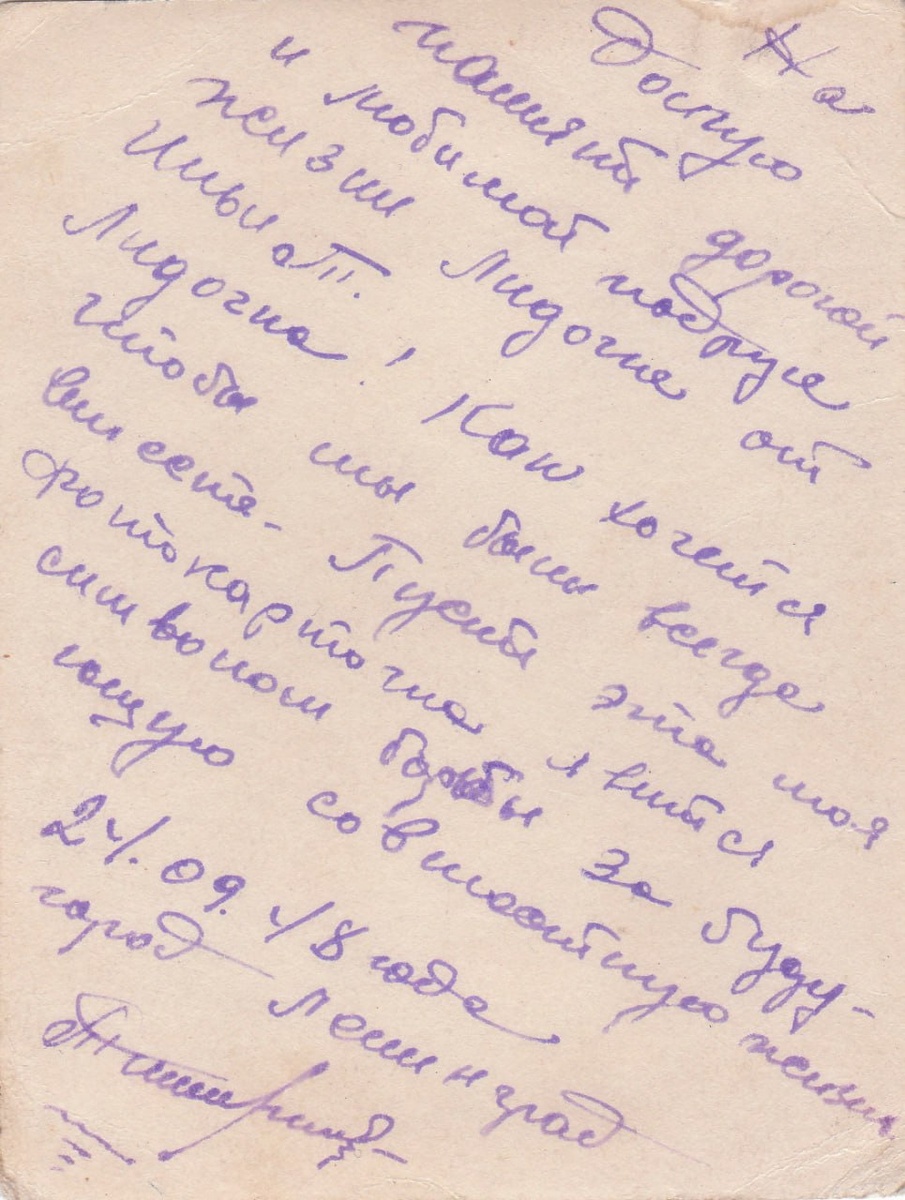 На
долгую
память дорогой
и любимой подруге
жизни Лидочке от
Ильи П.
Лидочка! Как хочется
чтобы мы были всегда
вместе. Пусть эта моя
фотокарточка явится
символом борьбы за буду-
ющую совместную жизнь
24.09.48 года
город Ленинград